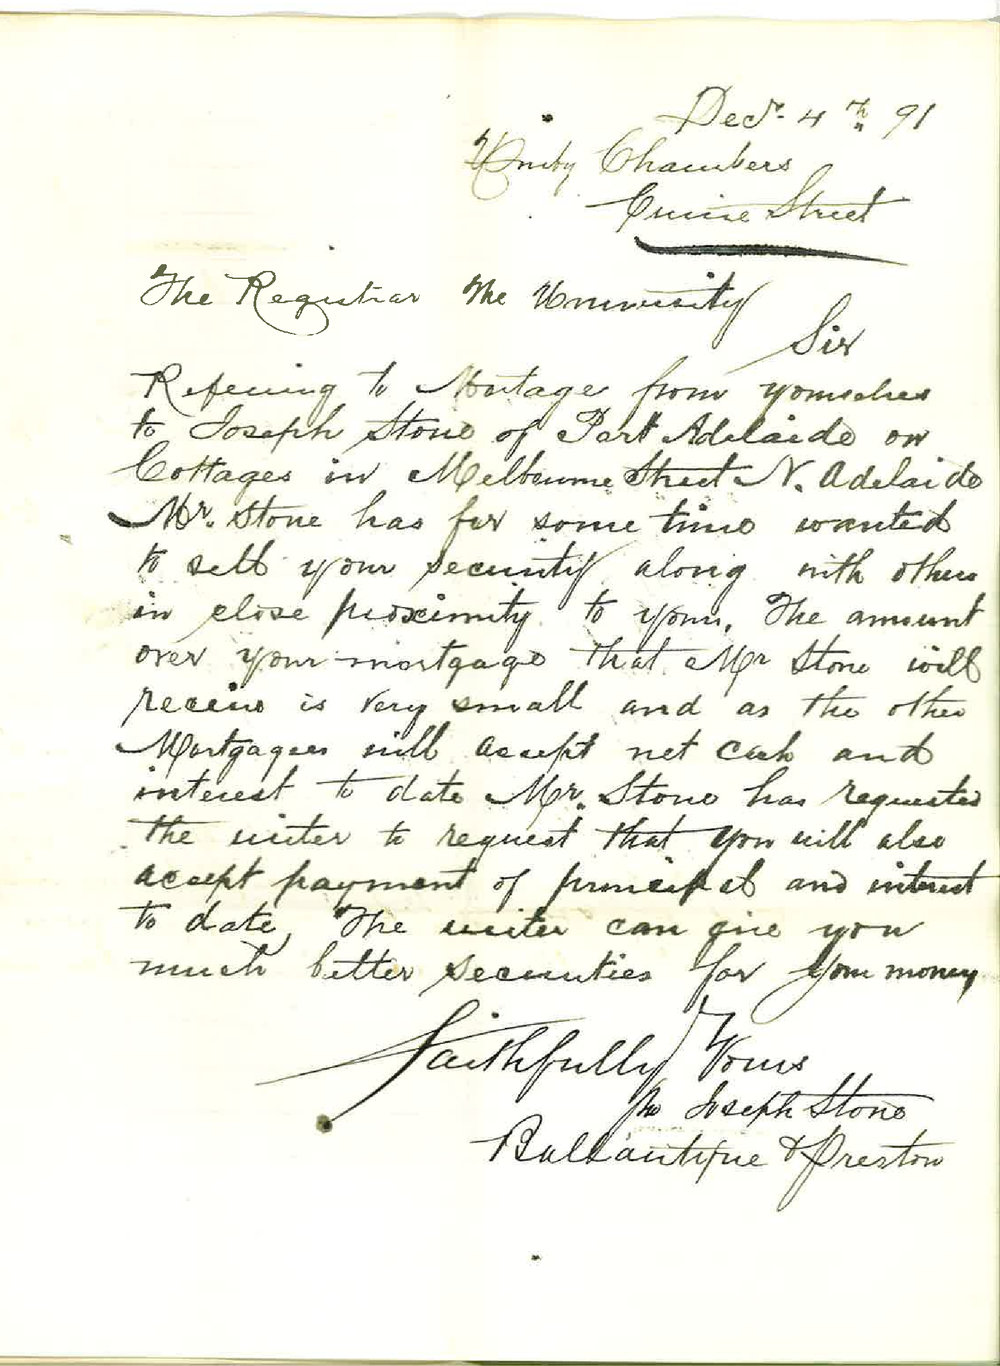 Decr. 4th 91
Unity Chambers
Currie Street
The Registrar The University
Sir
Referring to Mortage from yourselves
to Joseph Stone of Port Adelaide on
Cottages in Melbourne Street N. Adelaide
Mr. Stone has for some time wanted
to sell your security along with others
in close proximity to yours. The amount
over your mortgage that Mr Stone will
receive is very small and as the other
Mortgagees will accept net cash and
interest to date Mr. Stone has requested
the writer to request that you will also
accept payment of principal and interest
to date, The writer can give you
much better securities for your money
Faithfully Yours
pro Joseph Stone
Ballantyne & Preston